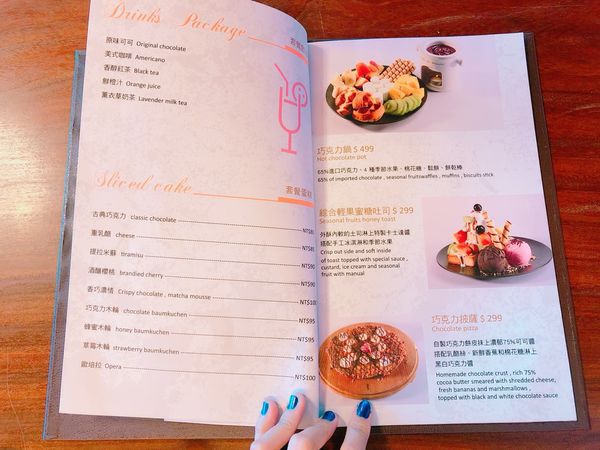 Drinks Package
原味可可 Original chocolate
美式咖啡 Americano
香醇紅茶 Black tea
鮮橙汁 Orange juice
薰衣草奶茶 Lavender milk tea
Sliced cake 套餐蛋糕
古典巧克力 classic chocolate
重乳酪 cheese NT$85
提拉米蘇 tiramisu
酒釀櫻桃 brandied cherry NT$90
香巧濃情 Crispy chocolate , matcha mousse NT$100
巧克力木輪 chocolate baumkuchen NT$95
蜂蜜木輪 honey baumkuchen NT$95
草莓木輪 strawberry baumkuchen NT$95
歐培拉 Opera NT$100
巧克力鍋 $ 499
Hot chocolate pot
65%進口巧克力、4 種季節水果、棉花糖、鬆餅、餅乾棒
65% of imported chocolate , seasonal fruitswaffles , muffins , biscuits stick
綜合輕果蜜糖吐司 $ 299
Seasonal fruits honey toast
外酥內軟的土司淋上特製卡士達醬
搭配手工冰淇淋和季節水果
Crisp out side and soft inside
of toast topped with special sauce ,
custard, ice cream and seasonal
fruit with manual
巧克力披薩 $ 299
Chocolate pizza
自製巧克力酥皮抹上濃郁75%可可醬
搭配乳酪絲、新鮮香蕉和棉花糖淋上
黑白巧克力醬
Homemade chocolate crust , rich 75%
cocoa butter smeared with shredded cheese,
fresh bananas and marshmallows ,
topped with black and white chocolate sauce